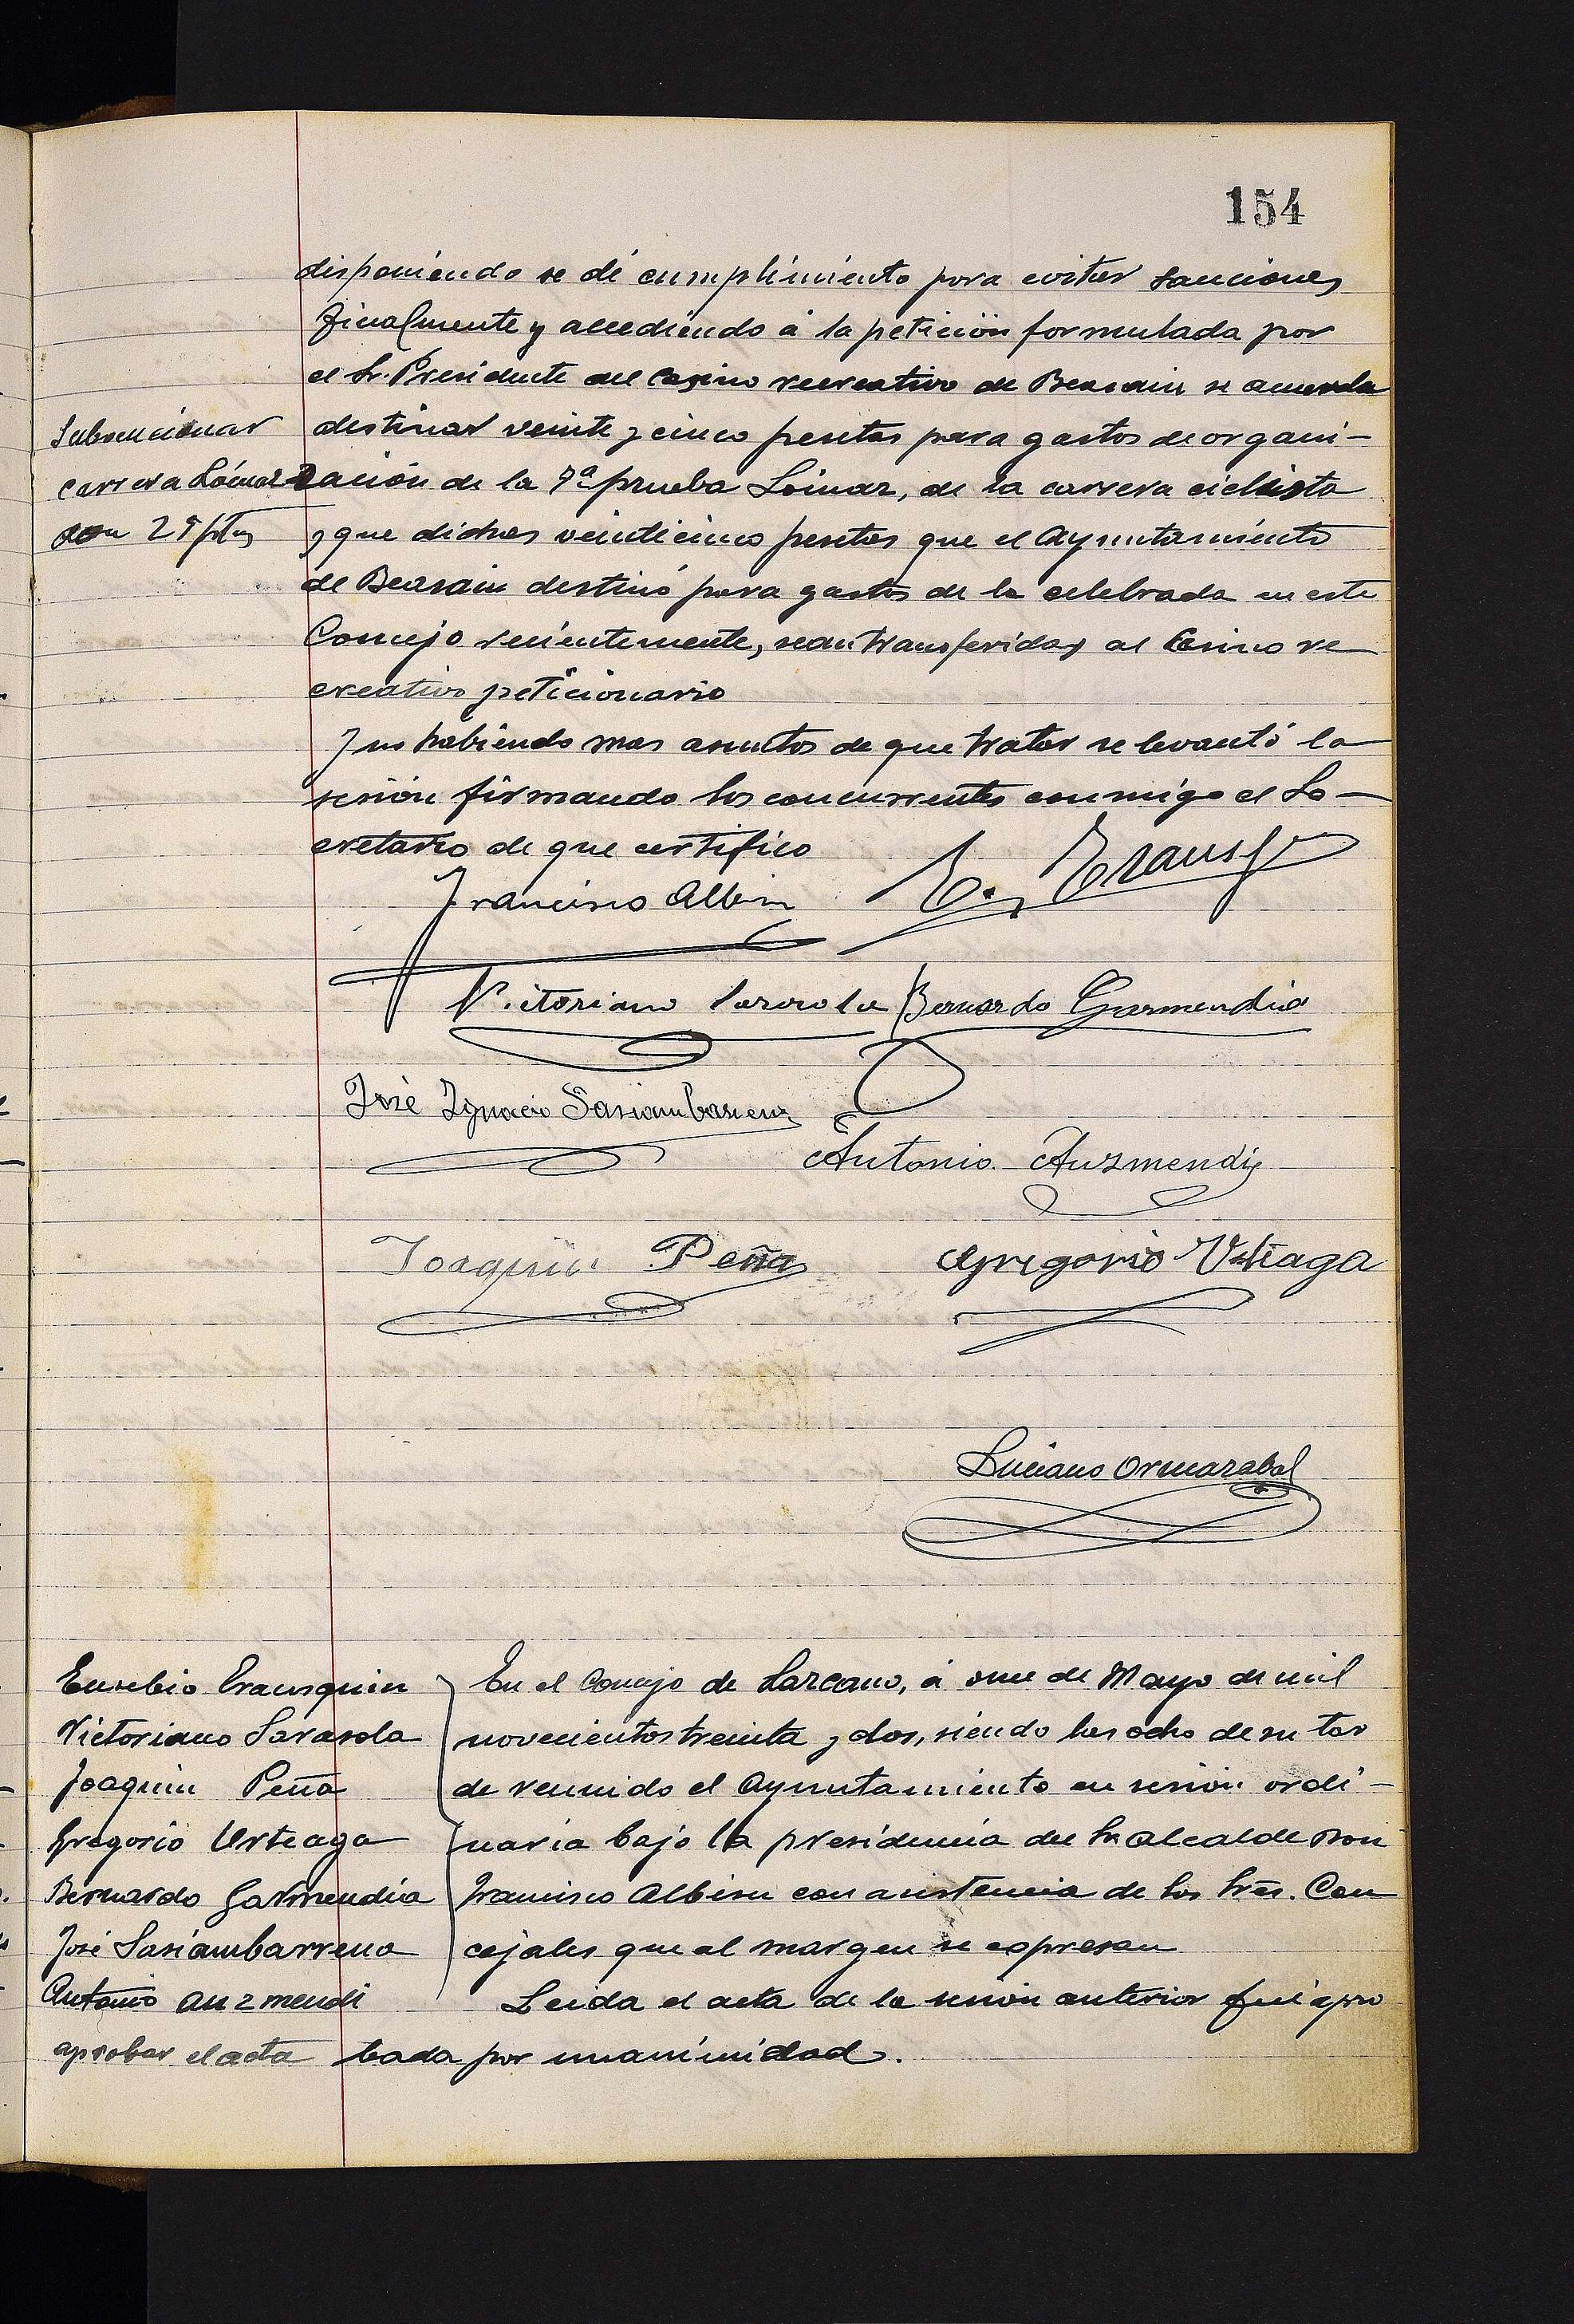 154
disponiendo se dé cumplimiento para evitar sanciones
Finalmente y accediendo á la petición formulada por
el Sr. Presidente del Casino recreativo de Beasain se acuerda
Subvencionar
carrera Loinaz
con 25 ptas
destinar veinte y cinco pesetas para gastos de organi-
zación de la 7ª prueba Loinaz, de la carrera ciclista
y que dichas veinticinco pesetas que el Ayuntamiento
de Beasain destinó para gastos de la celebrada en este
Concejo recientemente, sean transferidas al Casino re
creativo peticionario
Y no habiendo mas asuntos de que tratar se levantó la
sesión firmando los concurrentes conmigo el Se-
cretario de que certifico
Francisco Albisu E. Erausq
Victoriano Sarasola Bernardo Garmendia
José Ignacio Sasiambarrena
Antonio Auzmendi
Joaquin Peña Gregorio Urteaga
Luciano Ormazabal
Eusebio Erausquin
Victoriano Sarasola
Joaquin Peña
Gregorio Urteaga
Bernardo Garmendia
José Sasiambarrena
Antonio Auzmendi
aprobar el acta
En el Concejo de Lazcano, á once de Mayo de mil
novecientos treinta y dos, siendo las ocho de su tar
de reunido el Ayuntamiento en sesión ordi-
naria bajo la presidencia del Sr. Alcalde Don
Francisco Albisu con asistencia de los Sres. Con
cejales que al margen se expresan
Leida el acta de la sesión anterior fué apro
bada por unanimidad.